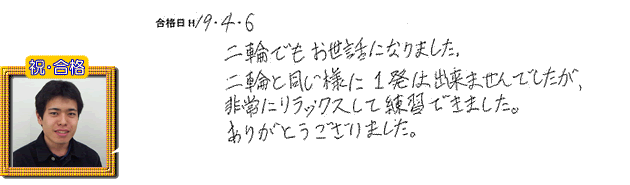 合格日 H19・4・6
二輪でもお世話になりました。
二輪と同じ様に1発は出来ませんでしたが、
非常にリラックスして練習できました。
ありがとうございました。
祝・合格